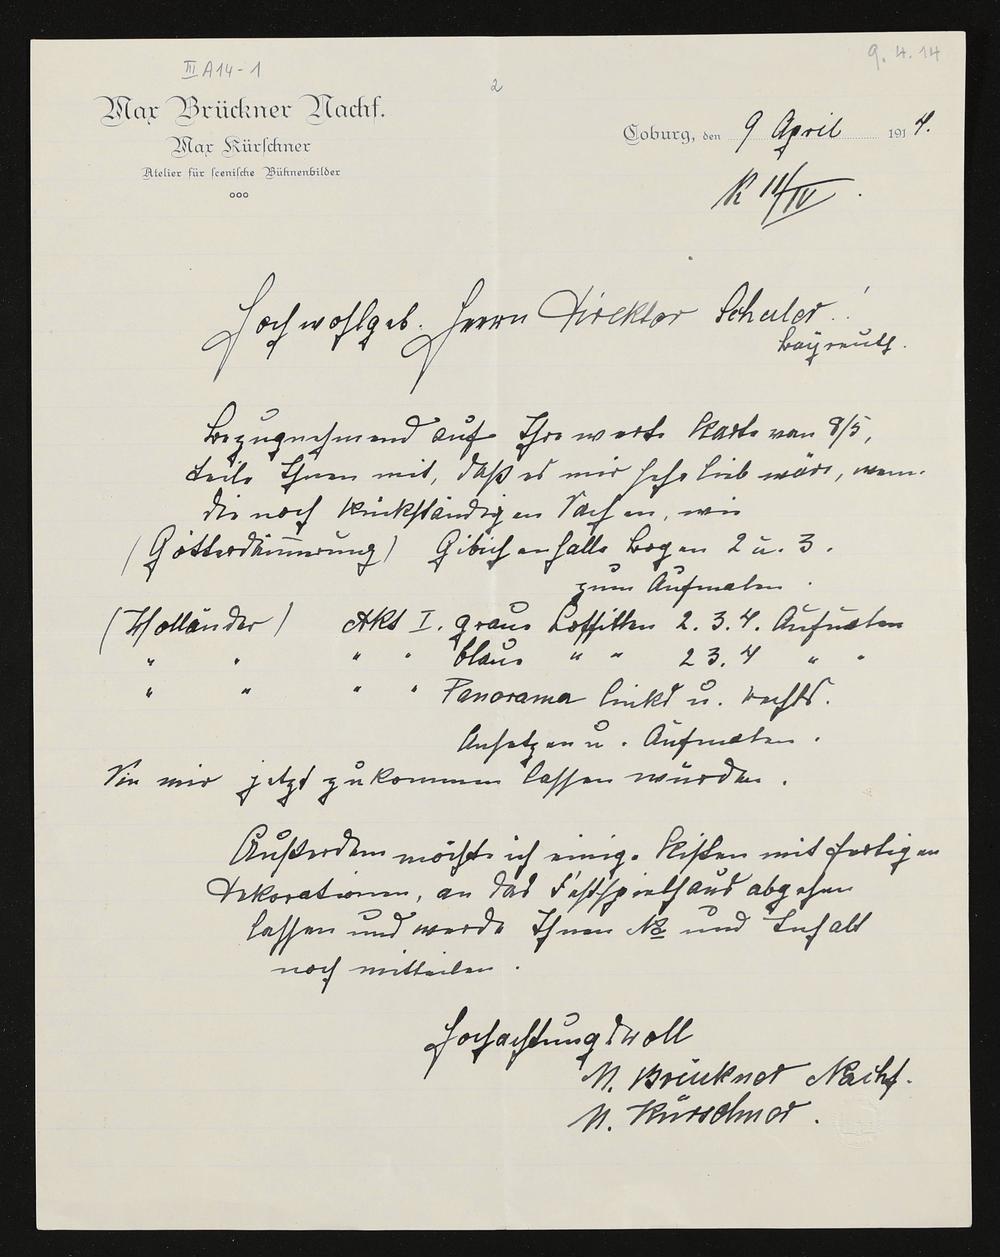 III A14-1
9.4.14
2
Max Brückner Nachf.
Max Kürschner
Atelier für scenische Bühnenbilder
Coburg, den 9 April 1914.
K 11/IV.
Hochwohlgeb. Herrn Direktor Schuler!
Bayreuth.
Bezugnehmend auf Ihre werte Karte vom 8/5,
teile Ihnen mit, daß es mir sehr lieb wäre, wenn
die noch rückständigen Sachen, wie
(Götterdämmerung) Gibichenhalle Bogen 2 u. 3.
zum Aufmalen.
(Holländer) Akt I. graue Soffitten 2. 3. 4. Aufmalen
" " " " blaue " " 2 3. 4 " "
" " " " Panorama links u. rechts.
Ansetzen u. Aufmalen.
Sie mir jetzt zukommen lassen würden.
Außerdem möchte ich einige Kisten mit fertigen
Dekorationen, an das Festspielhaus abgehen
lassen und werde Ihnen No und Inhalt
noch mitteilen.
Hochachtungsvoll
M. Brückner Nachf.
M. Kürschner.